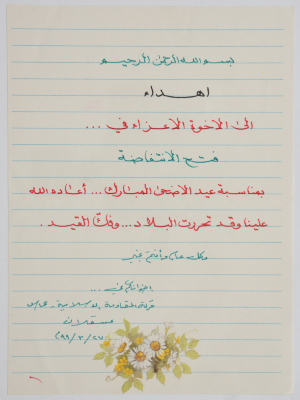 بسم الله الرحمن الرحيم
اهداء
الى الاخوة الأعزاء في ...
فتح الانتفاضة
بمناسبة عيد الاضحى المبارك ... أعاده الله
علينا وقد تحررت البلاد ... وفكّ القيد .
وكل عام وأنتم بخير
اخوانكم في ...
حركة المقاومة الاسلامية - حماس
عسقلان